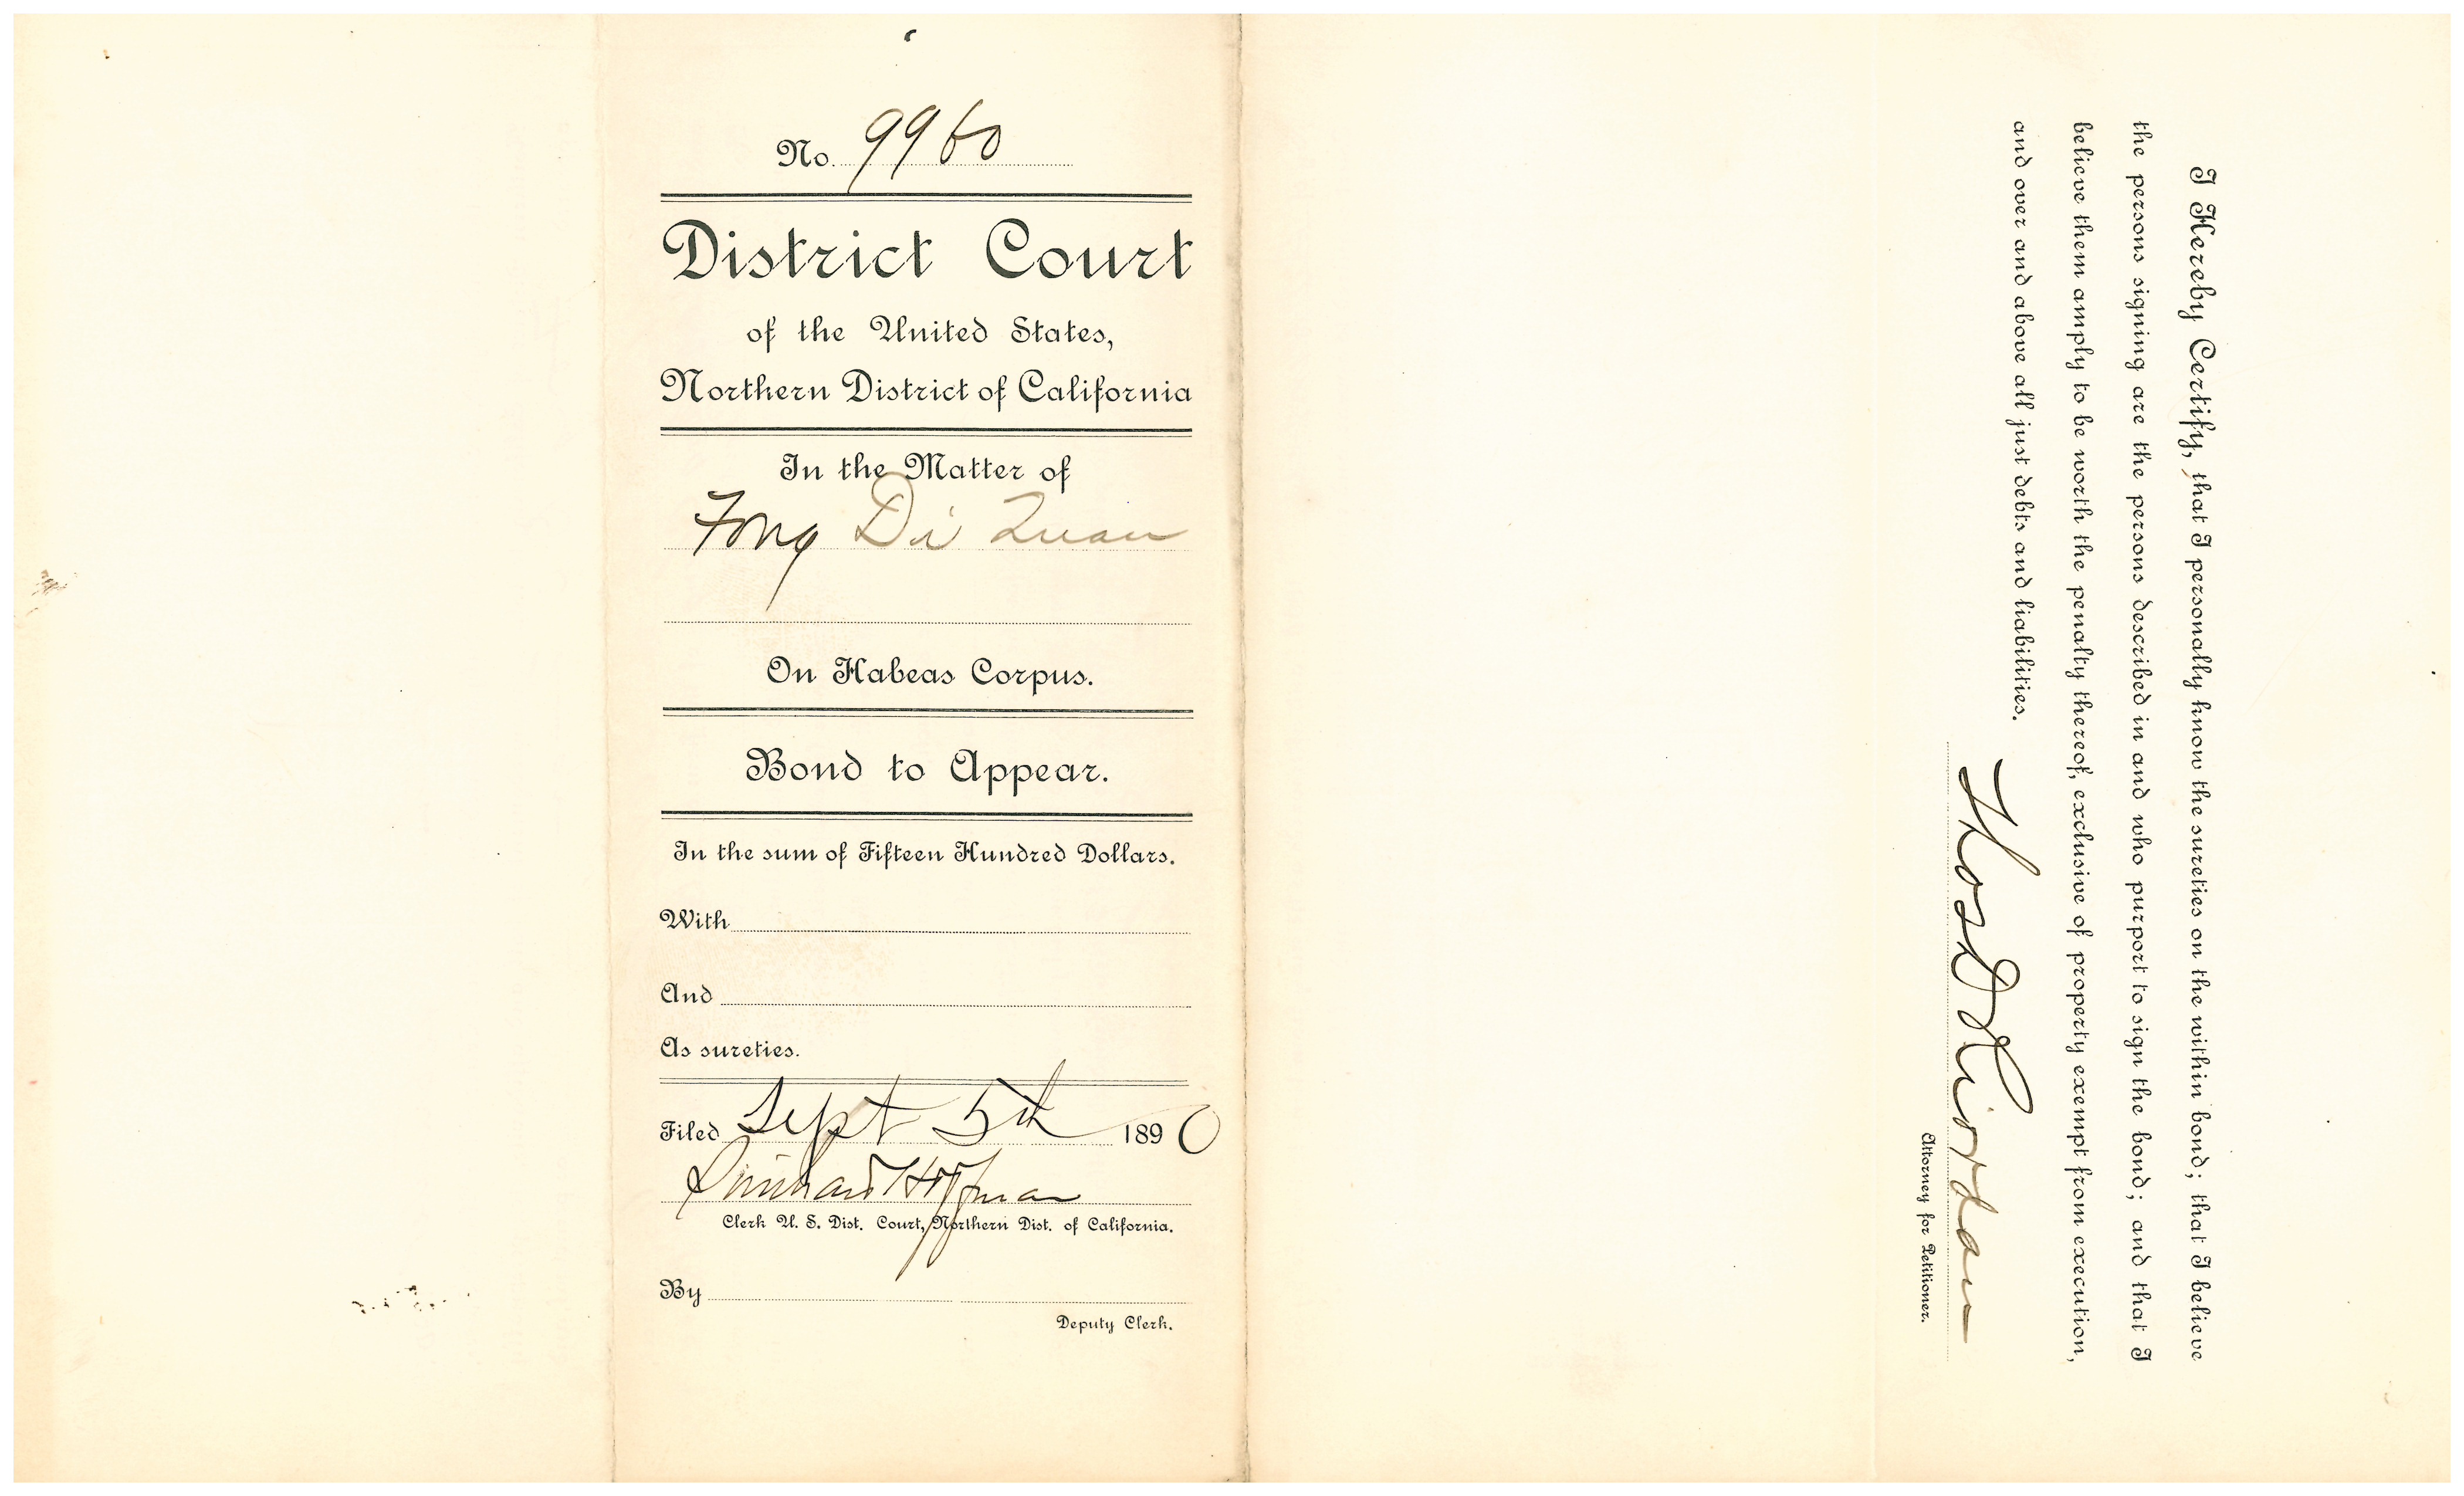 No. 9960
District Court
of the United States,
Northern District of California
In the Matter of
Fong Di Quan
On Habeas Corpus.
Bond to Appear.
In the sum of Fifteen Hundred Dollars.
With
And
As sureties.
Filed Sept 5th 1890
Southard Hoffman
Clerk U. S. Dist. Court, Northern Dist. of California.
By
Deputy Clerk.
I Hereby Certify, that I personally know the sureties on the within bond; that I believe
the persons signing are the persons described in and who purport to sign the bond; and that I
believe them amply to be worth the penalty thereof, exclusive of property exempt from execution,
and over and above all just debts and liabilities.
Thos D Riordan
Attorney for Petitioner.